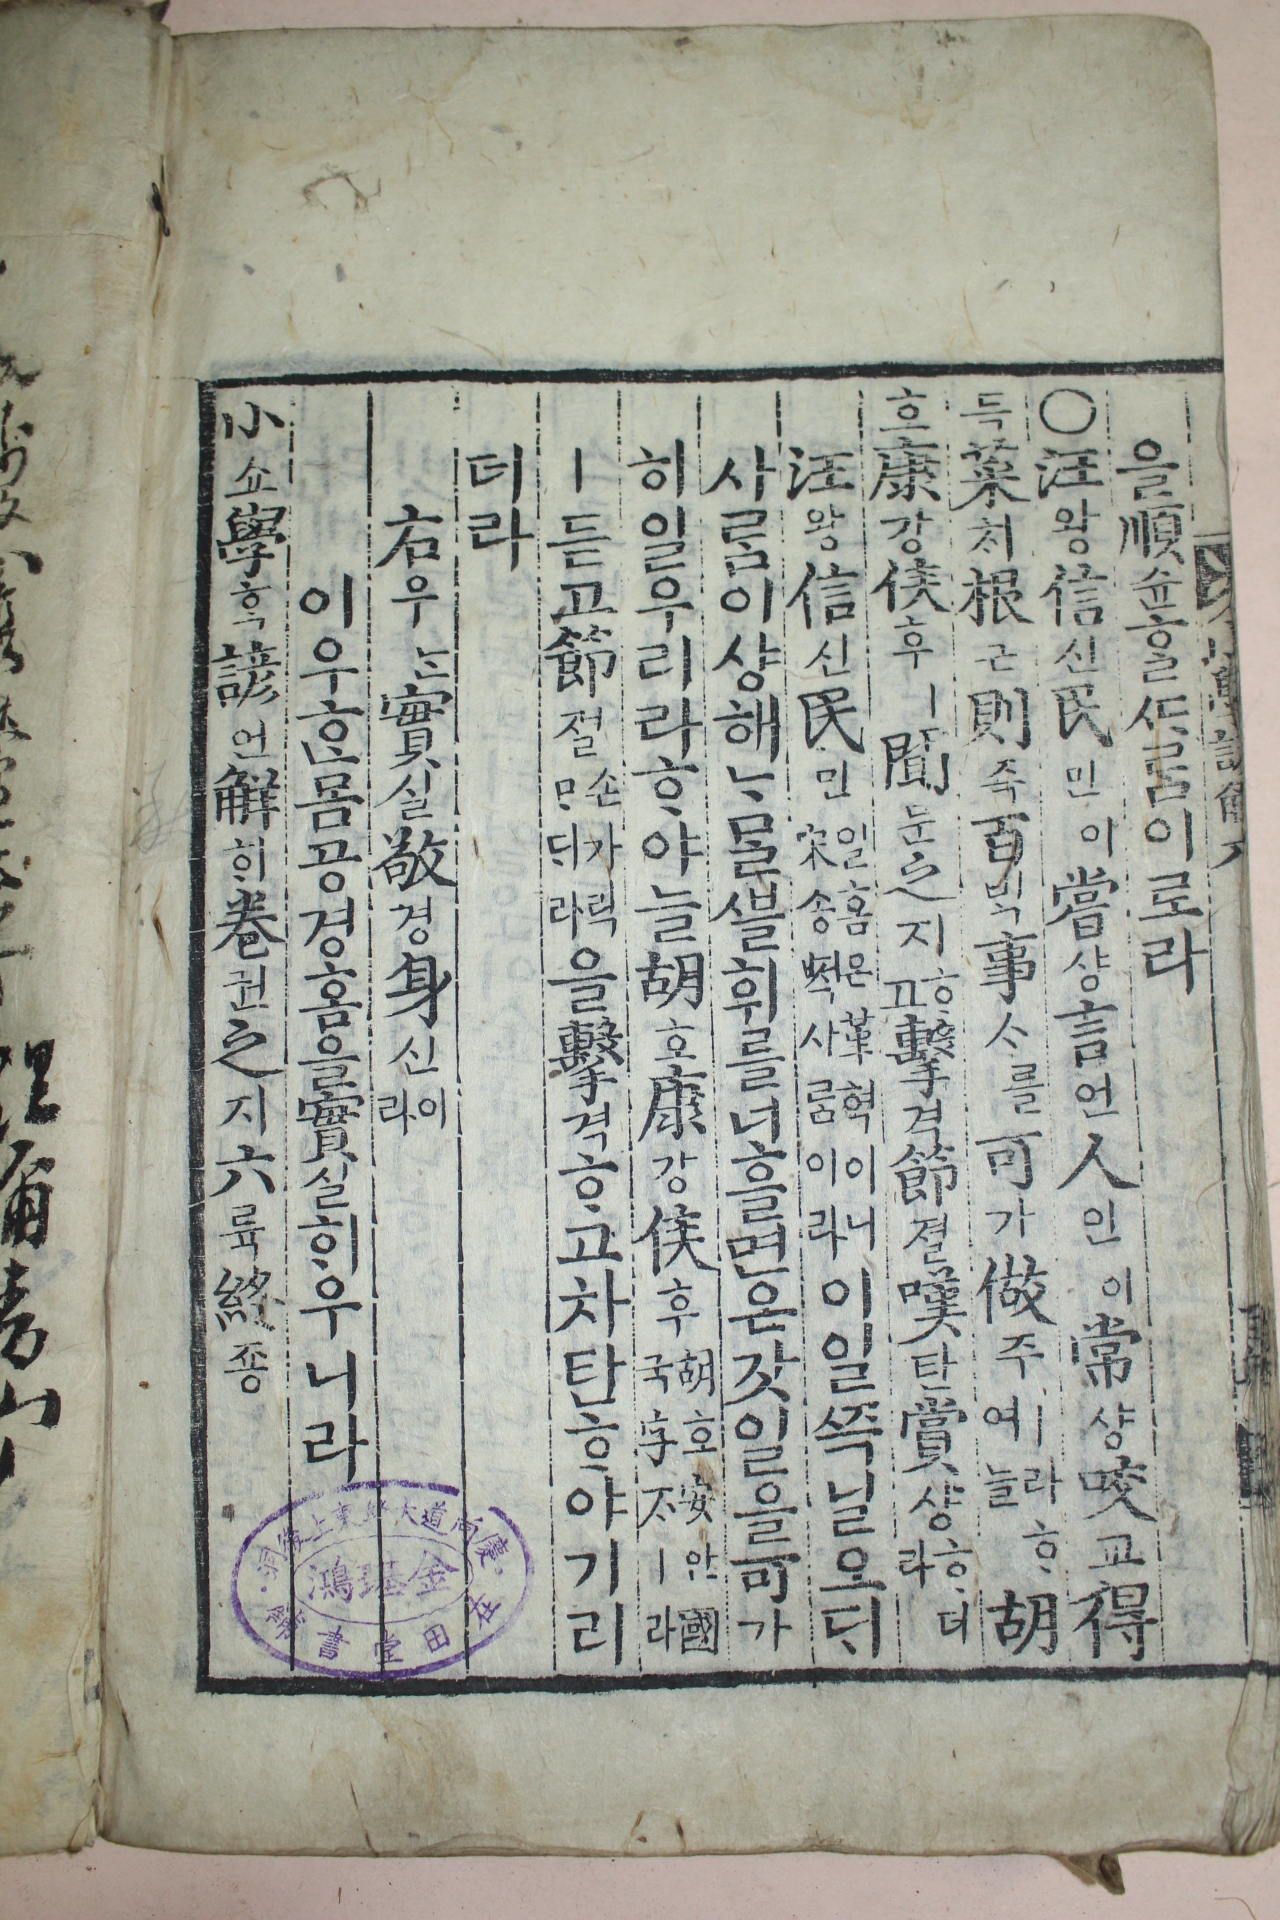 을順슌ᄒᆞᆯᄯᆞᄅᆞᆷ이로라
○汪왕信신民민이嘗샹言언人인이常샹咬교得
득菜ᄎᆡ根근則즉百ᄇᆡᆨ事ᄉᆞ를可가做주ㅣ라ᄒᆞ여늘胡
호康강侯후ㅣ聞문之지ᄒᆞ고擊격節졀嘆탄賞샹ᄒᆞ더라
汪왕信신民민일홈은革혁이니宋송적사ᄅᆞᆷ이라이일쯕닐오ᄃᆡ
사ᄅᆞᆷ이샹해ᄂᆞᄆᆞᆯ불휘를너흘면온갓일을可가
히일우리라ᄒᆞ야늘胡호康강侯후胡호安안國국字ᄌᆞㅣ라
ㅣ듣고節졀손가락ᄆᆞᄃᆡ라을擊격ᄒᆞ고차탄ᄒᆞ야기리
더라
右우ᄂᆞᆫ實실敬경身신이라
이우ᄒᆞᆫ몸공경홈을實실히우니라
小쇼學ᄒᆞᆨ諺언解ᄒᆡ卷권之지六륙終죵
金珽鴻